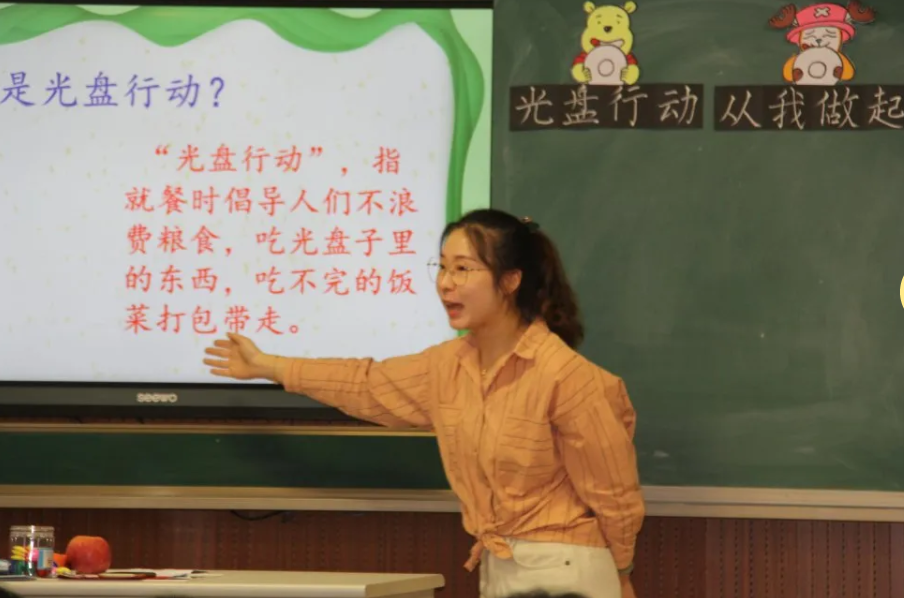 是光盘行动？
“光盘行动”，指
就餐时倡导人们不浪
费粮食，吃光盘子里
的东西，吃不完的饭
菜打包带走。
seewo
光盘行动 从我做起